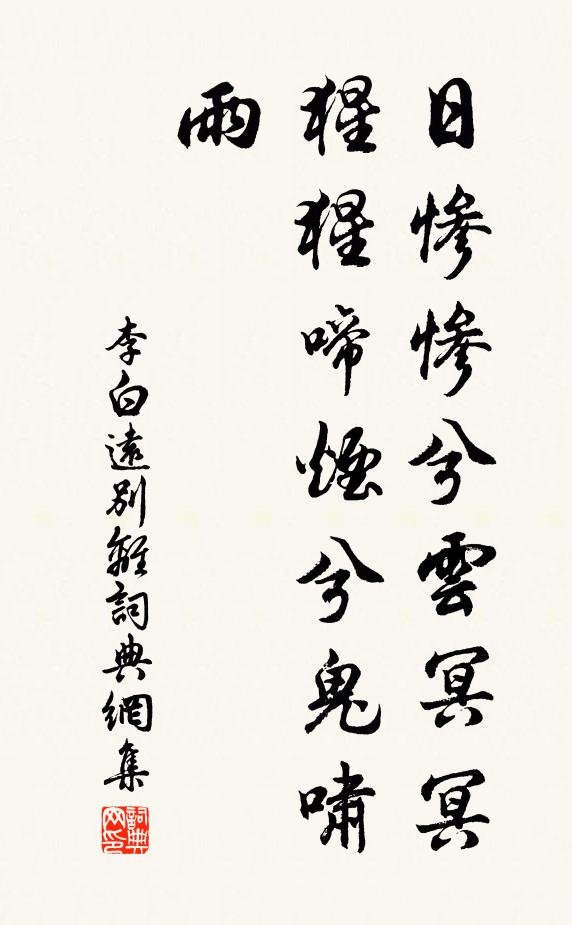 日慘慘兮雲冥冥
猩猩啼煙兮鬼嘯
雨
李白遠別離詞典網集
詞典网印